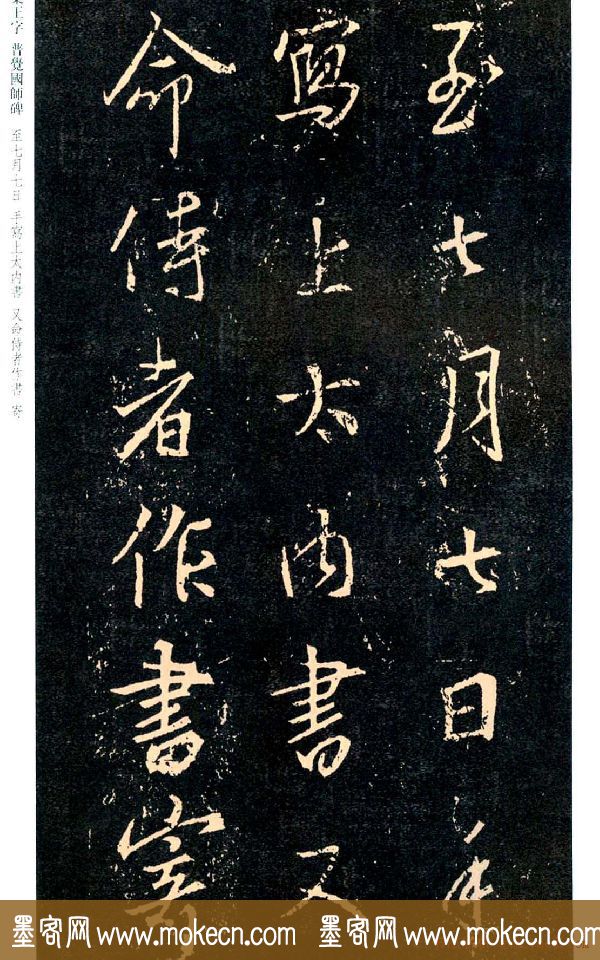 至七月七日手
寫上大内書又
命侍者作書寄
集王字 普覺國師碑 至七月七日 手寫上大内書 又命侍者作書 寄
墨客网 www.mokecn.com 墨客网 www.mokecn.com